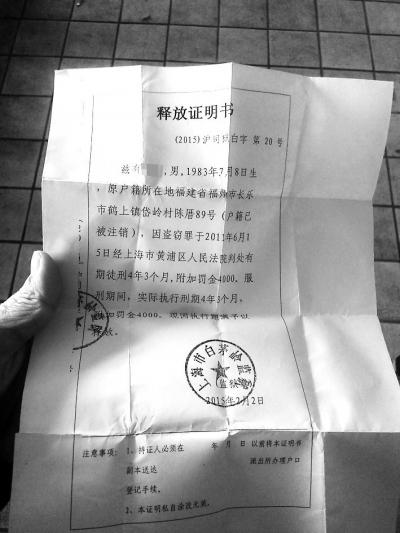 释放证明书
(2015)沪司狱白字 第 20 号
兹有 ,男,1983年7月8日生
,原户籍所在地福建省福州市长乐
市鹤上镇岱岭村陈厝89号(户籍已
被注销),因盗窃罪于2011年6月1
5日经上海市黄浦区人民法院判处有
期徒刑4年3个月,附加罚金4000。服
刑期间,实际执行刑期4年3个月,
附加罚金4000。现因执行期满予以
释放。
上海市白茅岭监狱
2015年2月2日
注意事项: 1、持证人必须在 年 月 日 以前将本证明书
副本送达 派出所办理户口
登记手续。
2、本证明私自涂改无效。